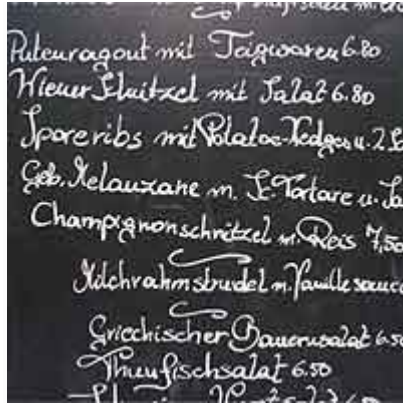 Putenragout mit Teigwaren 6.80
Wiener Schnitzel mit Salat 6.80
Spareribs mit Potatoe-Wedges u. 2
Geb. Melanzane m. Sc. Tartare u.
Champignonschnitzel m. Reis 7,50
Milchrahmstrudel m. Vanillesauce
Griechischer Bauernsalat 6.50
Thunfischsalat 6.50